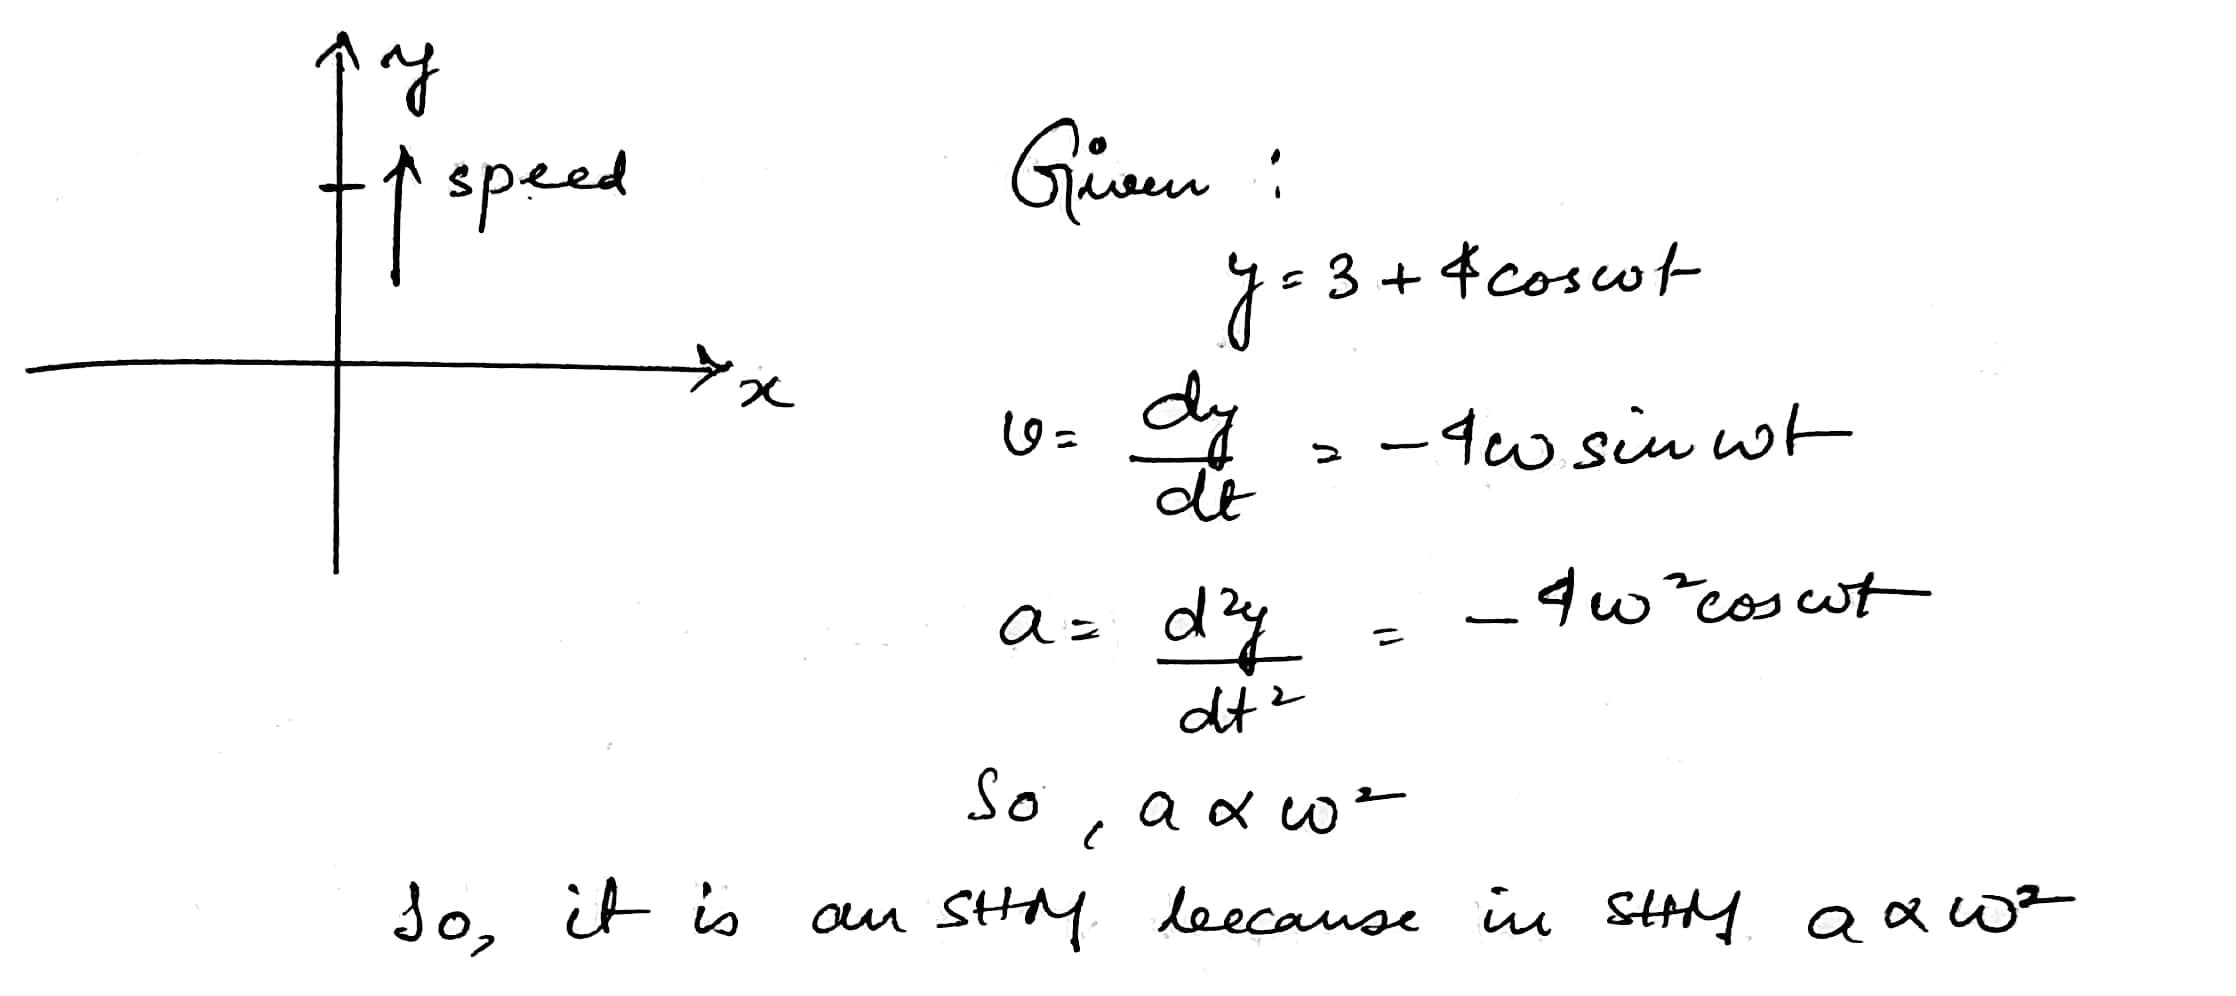 y
speed
x
Given :
y = 3 + 4 cos ωt
v = dy/dt = - 4ω sin ωt
a = d²y/dt² = - 4ω² cos ωt
So, a ∝ ω²
So, it is an SHM because in SHM a ∝ ω²